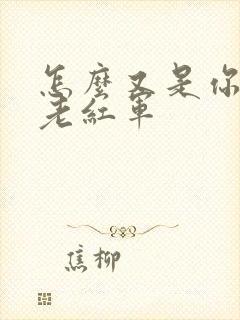 怎麼又是你
老紅軍
焦柳